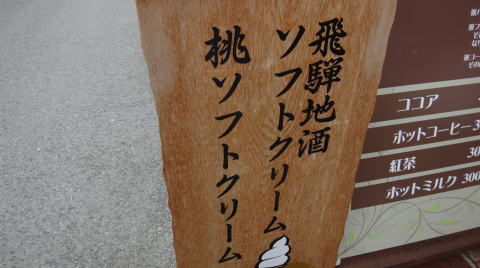 飛騨地酒
ソフトクリーム
桃ソフトクリーム
ココア
ホットコーヒー
紅茶
ホットミルク 300